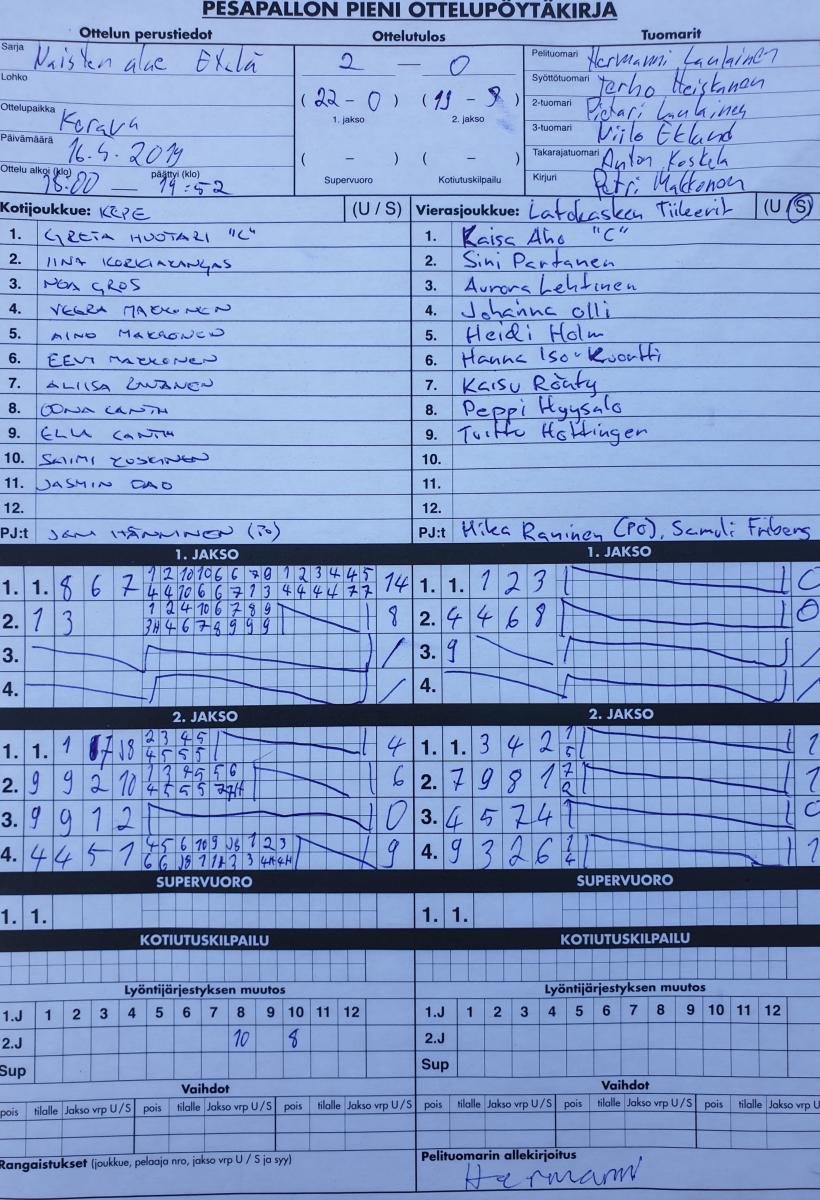 PESÄPALLON PIENI OTTELUPÖYTÄKIRJA
Ottelun perustiedot Ottelutulos Tuomarit
Sarja Naisten alue Etelä
Lohko
Ottelupaikka Kerava
Päivämäärä 2019
Ottelu alkoi (klo) 18:00 — päättyi (klo) 19:52
2 — 0
(22 - 0) (19 - 3)
1. jakso 2. jakso
( - ) ( - )
Supervuoro Kotiutuskilpailu
Pelituomari Hermanni Laulainen
Syöttötuomari Jerho Heiskanen
2-tuomari Pietari Laulainen
3-tuomari Niilo Eklund
Takarajatuomari Anton Koskela
Kirjuri Petri Makkonen
Kotijoukkue: KEPE (U / S)
1. GRETA HUOTARI "C"
2. IINA KORKIAKANGAS
3. NOA GROS
4. VEERA MAKKONEN
5. AINO MAKKONEN
6. EEVI MAKKONEN
7. ALIISA RAVANEN
8. OONA CANTH
9. ELLI CANTH
10. SAIMI KOSKINEN
11. JASMIN DAO
12.
PJ:t JANI HÄNNINEN (PJ)
Vierasjoukkue: Latokasken Tiikerit (U / S)
1. Kaisa Aho "C"
2. Sini Partanen
3. Aurora Lehtinen
4. Johanna Olli
5. Heidi Holm
6. Hanna Iso-Kuortti
7. Kaisu Rönty
8. Peppi Hyysalo
9. Tuittu Hottinger
10.
11.
12.
PJ:t Mika Raninen (PJ), Samuli Friberg
1. JAKSO
1. 1. 8 6 7 14
2. 1 3 8
3. /
4. /
1. JAKSO
1. 1. 1 2 3 0
2. 4 4 6 8 0
3. 9 /
4. /
2. JAKSO
1. 1. 1 7 J8 2 3 4 5 4
4 5 5 5
2. 9 9 2 10 1 3 4 5 5 6 6
3. 9 9 1 2 0
4. 4 4 5 1 9
2. JAKSO
1. 1. 3 4 2 1 1
5
2. 7 9 8 1 7 1
2
3. 4 5 7 4 0
4. 9 3 2 6 1 1
4
SUPERVUORO
1. 1.
SUPERVUORO
1. 1.
KOTIUTUSKILPAILU
KOTIUTUSKILPAILU
Lyöntijärjestyksen muutos
1.J 1 2 3 4 5 6 7 8 9 10 11 12
2.J 10 8
Sup
Lyöntijärjestyksen muutos
1.J 1 2 3 4 5 6 7 8 9 10 11 12
2.J
Sup
Vaihdot
pois tilalle Jakso vrp U / S pois tilalle Jakso vrp U / S pois tilalle Jakso vrp U / S
Vaihdot
pois tilalle Jakso vrp U / S pois tilalle Jakso vrp U / S pois tilalle Jakso vrp U
Rangaistukset (joukkue, pelaaja nro, jakso vrp U / S ja syy)
Pelituomarin allekirjoitus
Hermanni